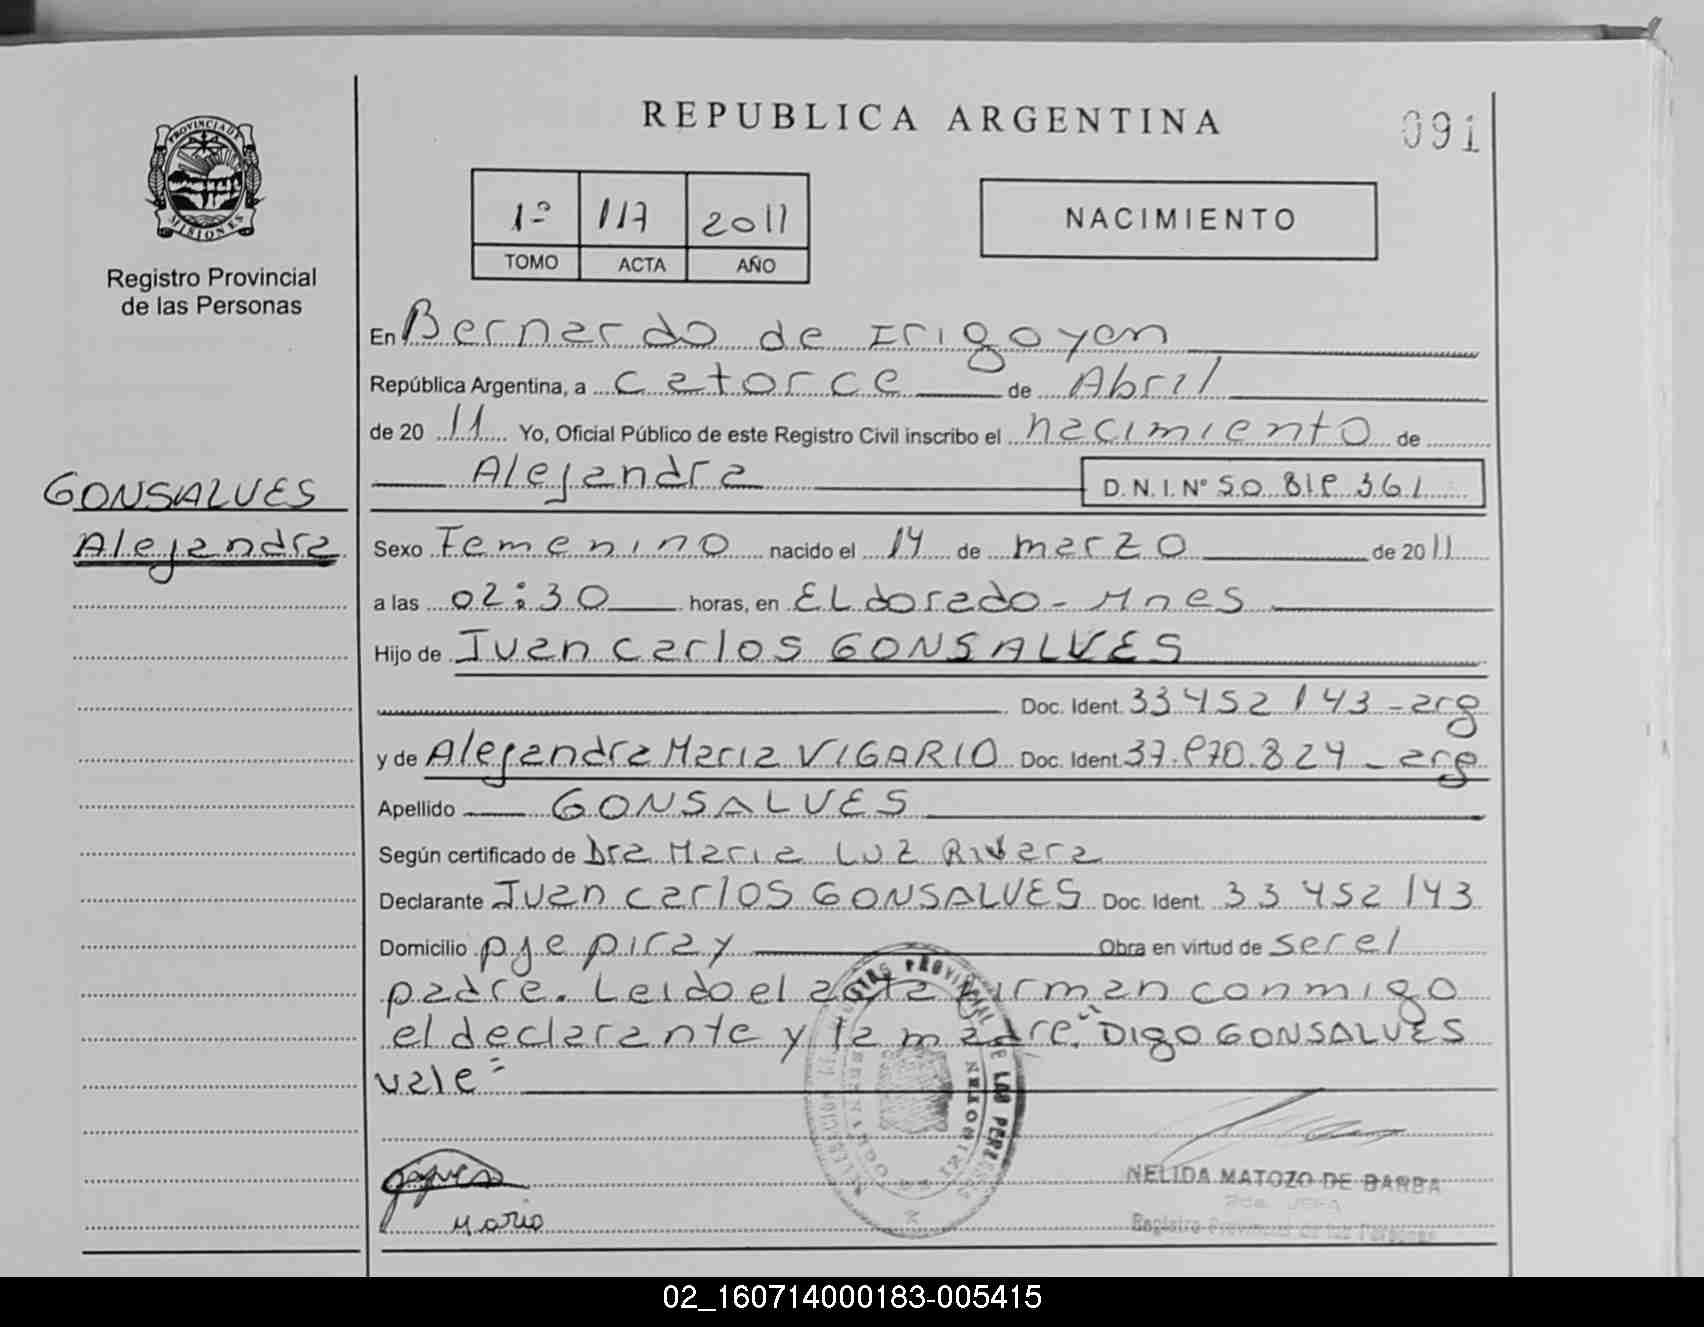 REPUBLICA ARGENTINA
091
PROVINCIA DE
MISIONES
Registro Provincial
de las Personas
1º 117 2011
TOMO ACTA AÑO
NACIMIENTO
En Bernardo de Irigoyen
República Argentina, a catorce de Abril
de 20 11 Yo, Oficial Público de este Registro Civil inscribo el nacimiento de
Alejandra D.N.I. Nº 50.819.361
GONSALVES
Alejandra
Sexo Femenino nacido el 14 de marzo de 20 11
a las 02:30 horas, en ELdorado - Mnes
Hijo de Juan carlos GONSALVES
Doc. Ident. 33 452 143 - arg
y de Alejandra Maria VIGARIO Doc. Ident. 37.970.824 - arg
Apellido GONSALVES
Según certificado de Dra Maria Luz Rivera
Declarante Juan carlos GONSALVES Doc. Ident. 33 452 143
Domicilio pje piray Obra en virtud de ser el
padre. Leido el acta firman conmigo
el declarante y la madre. "Digo GONSALVES
vale"
NELIDA MATOZO DE BARBA
2da JEFA
Registro Provincial de las Personas
Maria
02_160714000183-005415